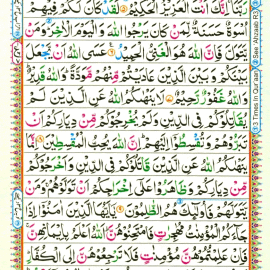 رَبَّنَا اِنَّكَ اَنْتَ الْعَزِيْزُ الْحَكِيْمُ لَقَدْ كَانَ لَكُمْ فِيْهِمْ
اُسْوَةٌ حَسَنَةٌ لِّمَنْ كَانَ يَرْجُوا اللّٰهَ وَ الْيَوْمَ الْاٰخِرَ وَمَنْ
يَّتَوَلَّ فَاِنَّ اللّٰهَ هُوَ الْغَنِيُّ الْحَمِيْدُ عَسَى اللّٰهُ اَنْ يَّجْعَلَ
بَيْنَكُمْ وَ بَيْنَ الَّذِيْنَ عَادَيْتُمْ مِّنْهُمْ مَّوَدَّةً وَ اللّٰهُ قَدِيْرٌ
وَ اللّٰهُ غَفُوْرٌ رَّحِيْمٌ لَا يَنْهٰىكُمُ اللّٰهُ عَنِ الَّذِيْنَ لَمْ
يُقَاتِلُوْكُمْ فِي الدِّيْنِ وَ لَمْ يُخْرِجُوْكُمْ مِّنْ دِيَارِكُمْ اَنْ
تَبَرُّوْهُمْ وَ تُقْسِطُوْا اِلَيْهِمْ اِنَّ اللّٰهَ يُحِبُّ الْمُقْسِطِيْنَ اِنَّمَا
يَنْهٰىكُمُ اللّٰهُ عَنِ الَّذِيْنَ قَاتَلُوْكُمْ فِي الدِّيْنِ وَ اَخْرَجُوْكُمْ
مِّنْ دِيَارِكُمْ وَ ظَاهَرُوْا عَلٰى اِخْرَاجِكُمْ اَنْ تَوَلَّوْهُمْ وَ مَنْ
يَّتَوَلَّهُمْ فَاُولٰٓئِكَ هُمُ الظّٰلِمُوْنَ يٰٓاَيُّهَا الَّذِيْنَ اٰمَنُوْا اِذَا
جَآءَكُمُ الْمُؤْمِنٰتُ مُهٰجِرٰتٍ فَامْتَحِنُوْهُنَّ اَللّٰهُ اَعْلَمُ بِاِيْمَانِهِنَّ
فَاِنْ عَلِمْتُمُوْهُنَّ مُؤْمِنٰتٍ فَلَا تَرْجِعُوْهُنَّ اِلَى الْكُفَّارِ
13 Times In Qur'aan